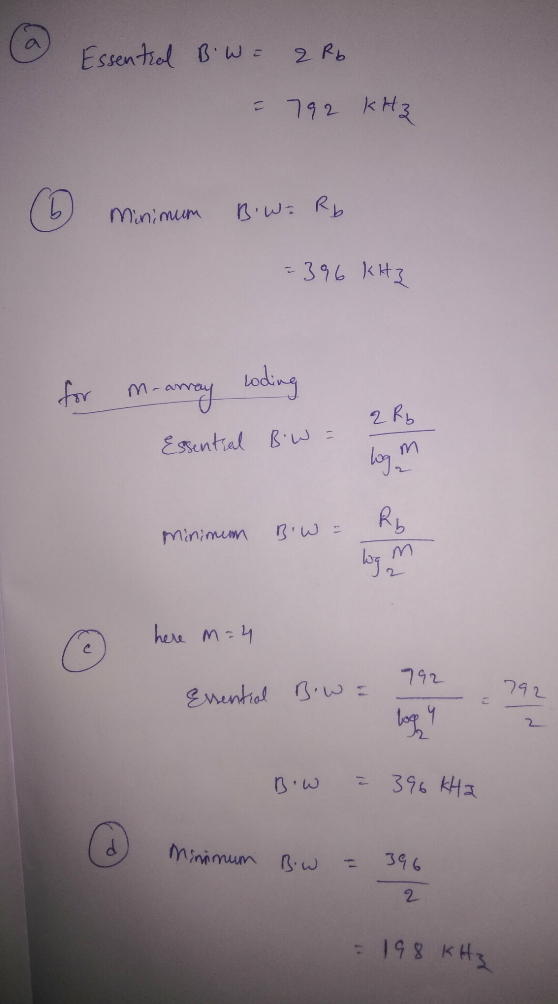 (a) Essential B.W = 2 Rb
= 792 KHz
(b) Minimum B.W = Rb
= 396 KHz
for m-array coding
Essential B.W = 2 Rb / log2 M
Minimum B.W = Rb / log2 M
(c) here M = 4
Essential B.W = 792 / log2 4 = 792 / 2
B.W = 396 KHz
(d) Minimum B.W = 396 / 2
= 198 KHz